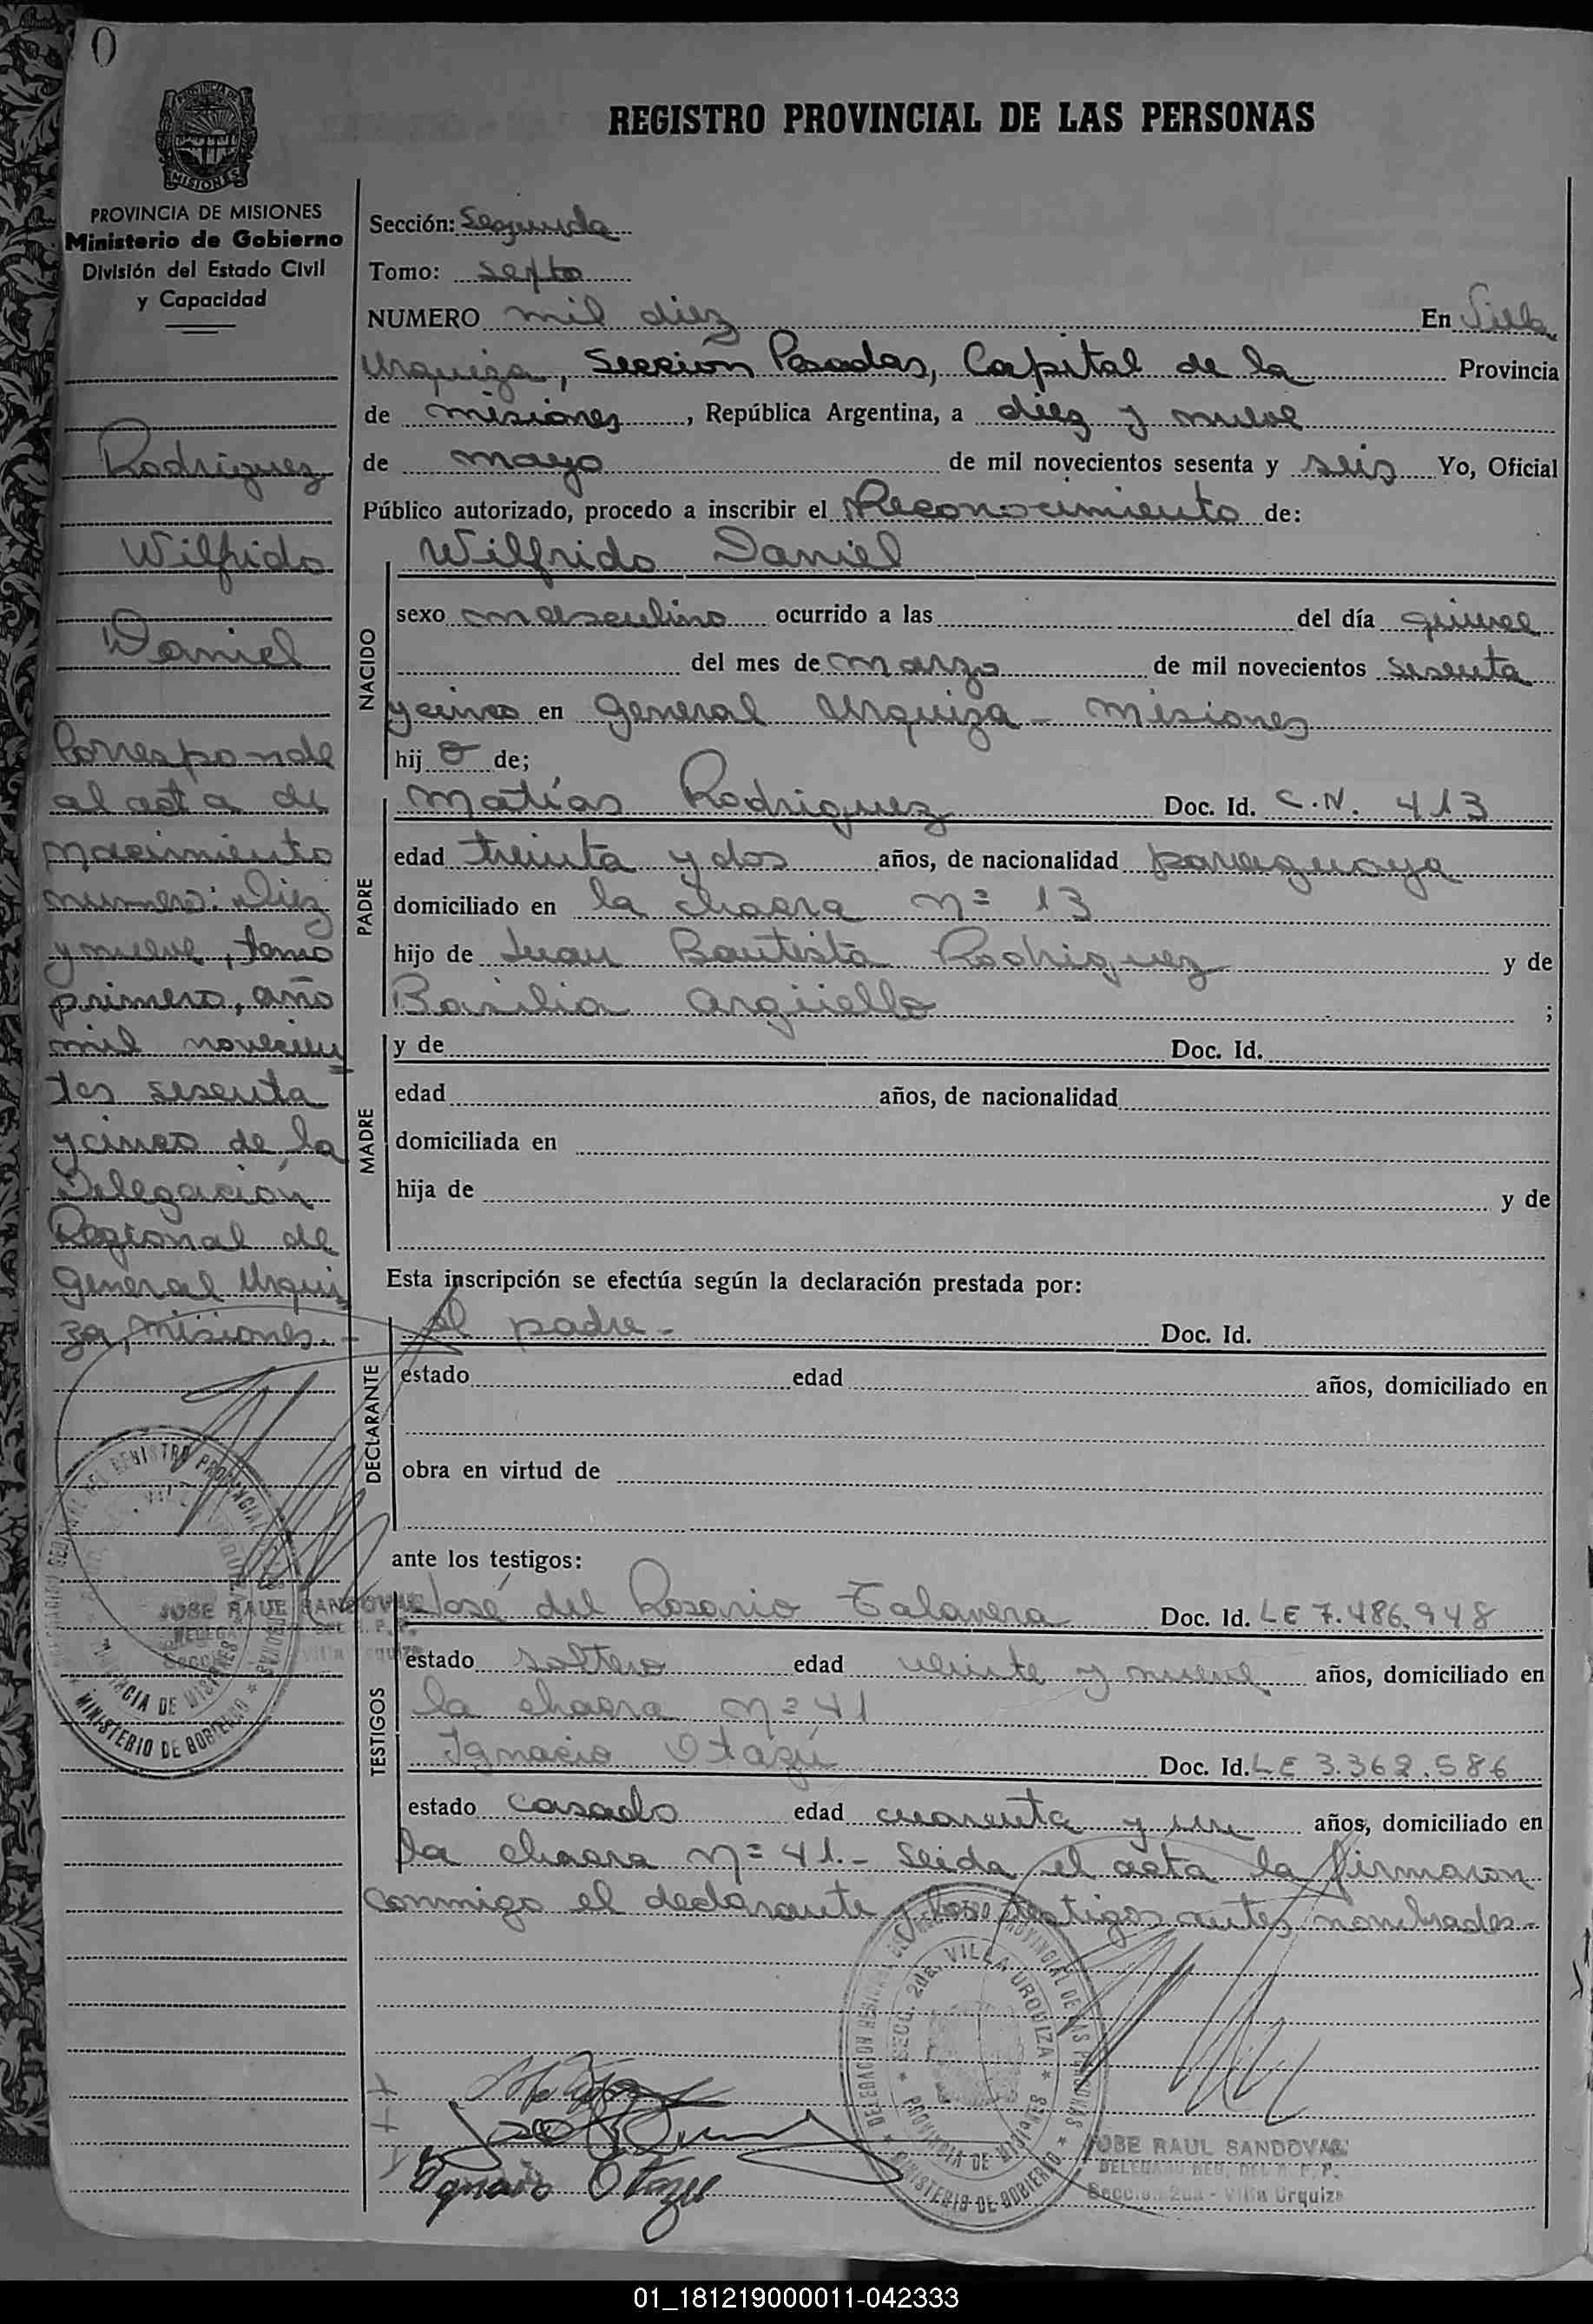 0
MISIONES
PROVINCIA DE MISIONES
Ministerio de Gobierno
División del Estado Civil
y Capacidad
REGISTRO PROVINCIAL DE LAS PERSONAS
Sección: Segunda
Tomo: septo
NUMERO mil diez En Villa
Urquiza, Sección Posadas, Capital de la Provincia
de misiones, República Argentina, a diez y nueve
de mayo de mil novecientos sesenta y seis Yo, Oficial
Público autorizado, procedo a inscribir el Reconocimiento de:
Rodriguez
Wilfrido
Daniel
Corresponde
al acta de
nacimiento
numero: Diez
y nueve, tomo
primero, año
mil novecien=
tos sesenta
y cinco de la
Delegación
Regional de
General Urqui
za, misiones.-
NACIDO
Wilfrido Daniel
sexo masculino ocurrido a las del día quince
del mes de marzo de mil novecientos sesenta
y cinco en General Urquiza - misiones
hij o de;
PADRE
Matías Rodriguez Doc. Id. C.N. 413
edad treinta y dos años, de nacionalidad paraguaya
domiciliado en la chacra nº 13
hijo de Juan Bautista Rodriguez y de
Basilia Argüello ;
MADRE
y de Doc. Id.
edad años, de nacionalidad
domiciliada en
hija de y de
Esta inscripción se efectúa según la declaración prestada por:
DECLARANTE
el padre- Doc. Id.
estado edad años, domiciliado en
obra en virtud de
ante los testigos:
TESTIGOS
José del Rosario Talavera Doc. Id. LE 7.486.948
estado soltero edad veinte y nueve años, domiciliado en
la chacra nº 41
Ignacio Otazú Doc. Id. LE 3.362.586
estado casado edad cuarenta y un años, domiciliado en
la chacra nº 41.- Leida el acta la firmaron
conmigo el declarante y los testigos antes nombrados.-
JOSE RAUL SANDOVAL
MINISTERIO DE GOBIERNO
DELEGACION REGIONAL DEL REGISTRO PROVINCIAL DE LAS PERSONAS
SECC. 2da. VILLA URQUIZA
PROVINCIA DE MISIONES
MINISTERIO DE GOBIERNO
Ignacio Otazu
JOSE RAUL SANDOVAL
DELEGADO REG. DEL R. P. P.
Sección 2da - Villa Urquiza
01_181219000011-042333